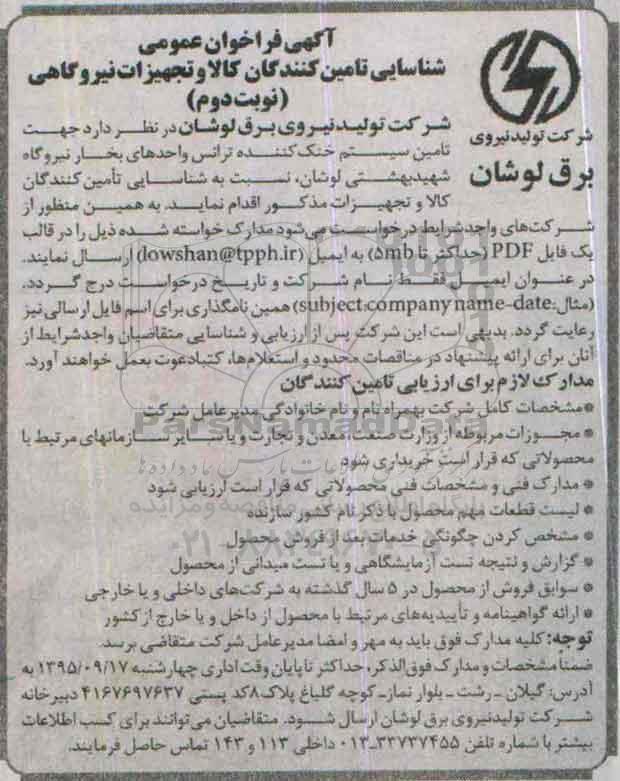 آگهی فراخوان عمومی
شناسایی تامین کنندگان کالا و تجهیزات نیروگاهی
(نوبت دوم)
شرکت تولید نیروی
برق لوشان
شرکت تولید نیروی برق لوشان در نظر دارد جهت
تامین سیستم خنک کننده ترانس واحدهای بخار نیروگاه
شهید بهشتی لوشان، نسبت به شناسایی تأمین کنندگان
کالا و تجهیزات مذکور اقدام نماید. به همین منظور از
شرکت‌های واجد شرایط درخواست می‌شود مدارک خواسته شده ذیل را در قالب
یک فایل PDF (حداکثر تا ۵mb) به ایمیل (lowshan@tpph.ir) ارسال نمایند.
در عنوان ایمیل فقط نام شرکت و تاریخ درخواست درج گردد.
(مثال: subject:company name-date) همین نامگذاری برای اسم فایل ارسالی نیز
رعایت گردد. بدیهی است این شرکت پس از ارزیابی و شناسایی متقاضیان واجد شرایط از
آنان برای ارائه پیشنهاد در مناقصات محدود و استعلام‌ها، کتباً دعوت بعمل خواهند آورد.
مدارک لازم برای ارزیابی تامین کنندگان
* مشخصات کامل شرکت بهمراه نام و نام خانوادگی مدیرعامل شرکت
* مجوزات مربوطه از وزارت صنعت، معدن و تجارت و یا سایر سازمانهای مرتبط با
محصولاتی که قرار است خریداری شود
* مدارک فنی و مشخصات فنی محصولاتی که قرار است ارزیابی شود
* لیست قطعات مهم محصول با ذکر نام کشور سازنده
* مشخص کردن چگونگی خدمات بعد از فروش محصول
* گزارش و نتیجه تست آزمایشگاهی و یا تست میدانی از محصول
* سوابق فروش از محصول در ۵ سال گذشته به شرکت‌های داخلی و یا خارجی
* ارائه گواهینامه و تأییدیه‌های مرتبط با محصول از داخل و یا خارج از کشور
توجه: کلیه مدارک فوق باید به مهر و امضا مدیرعامل شرکت متقاضی برسد.
ضمناً مشخصات و مدارک فوق‌الذکر، حداکثر تا پایان وقت اداری چهارشنبه ۱۳۹۵/۰۹/۱۷ به
آدرس: گیلان ـ رشت ـ بلوار نماز ـ کوچه گلباغ پلاک ۸ کد پستی ۴۱۶۷۶۹۷۶۳۷ دبیرخانه
شرکت تولید نیروی برق لوشان ارسال شود. متقاضیان می‌توانند برای کسب اطلاعات
بیشتر با شماره تلفن ۳۳۷۳۷۴۵۵ـ۰۱۳ داخلی ۱۱۳ و ۱۴۳ تماس حاصل فرمایند.
ParsNamadData